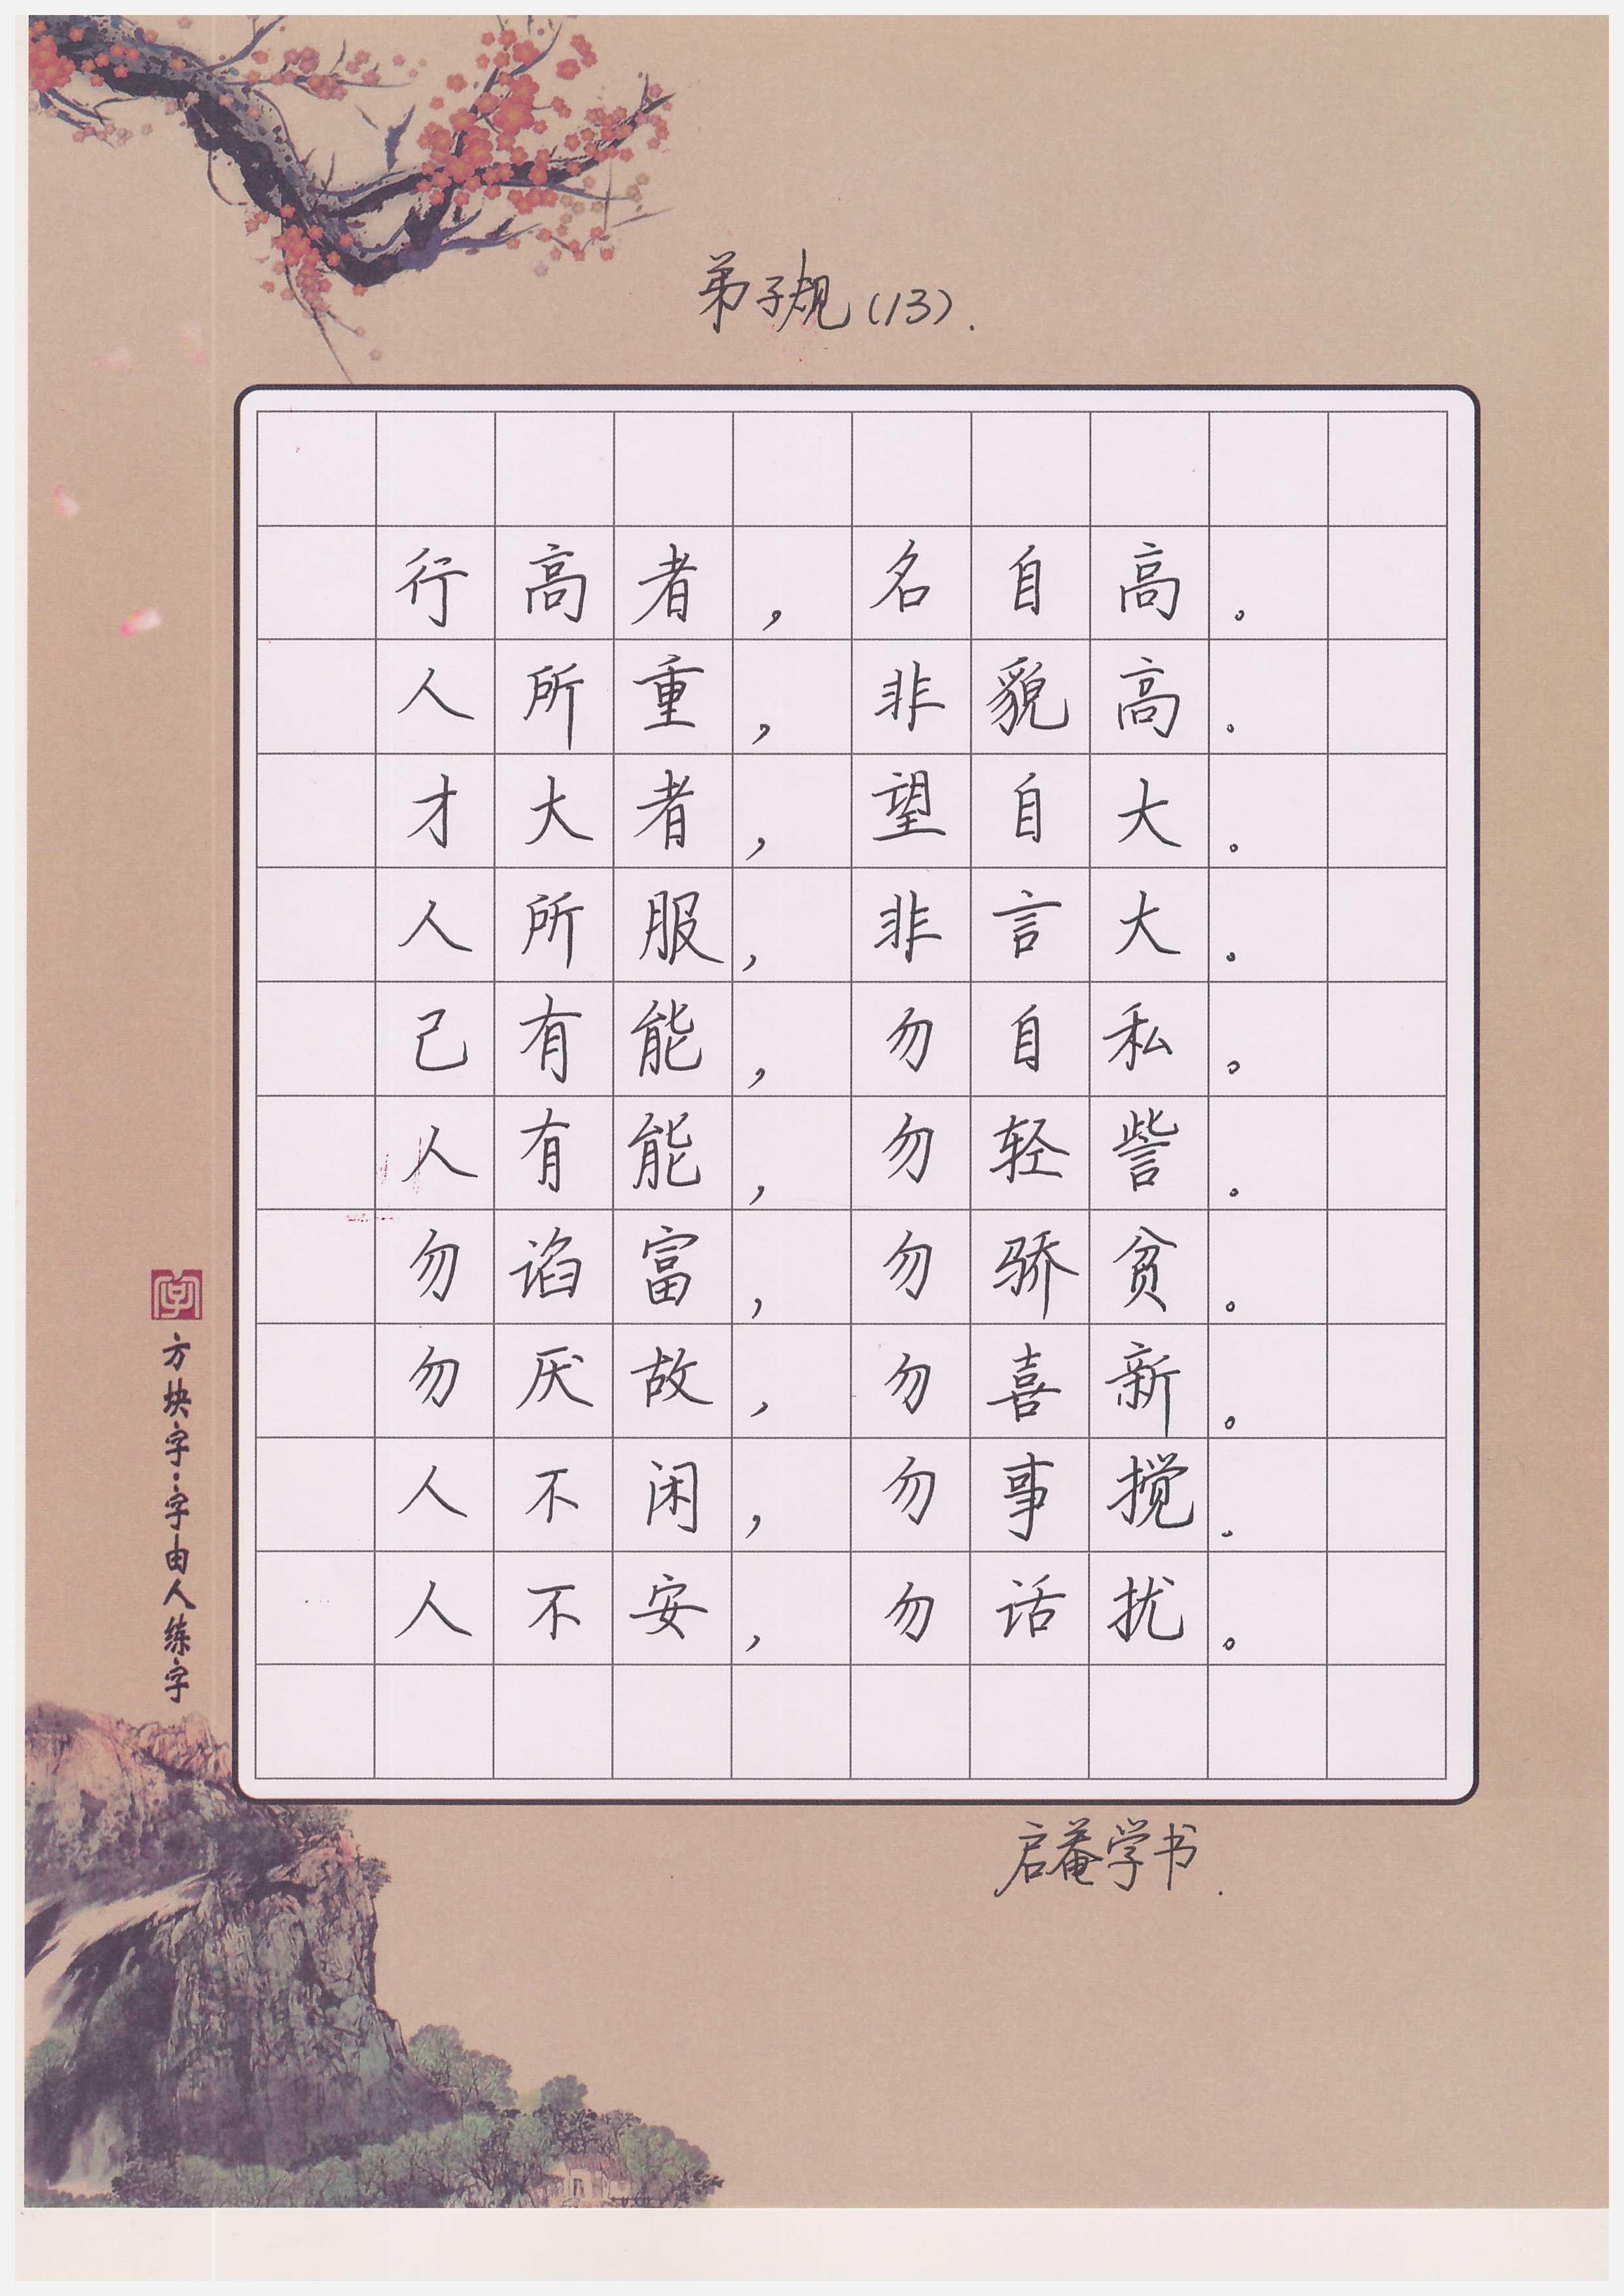 弟子规(13).
行高者，名自高。
人所重，非貌高。
才大者，望自大。
人所服，非言大。
己有能，勿自私。
人有能，勿轻訾。
勿谄富，勿骄贫。
勿厌故，勿喜新。
人不闲，勿事搅。
人不安，勿话扰。
字
方块字·字由人练字
启菴学书.